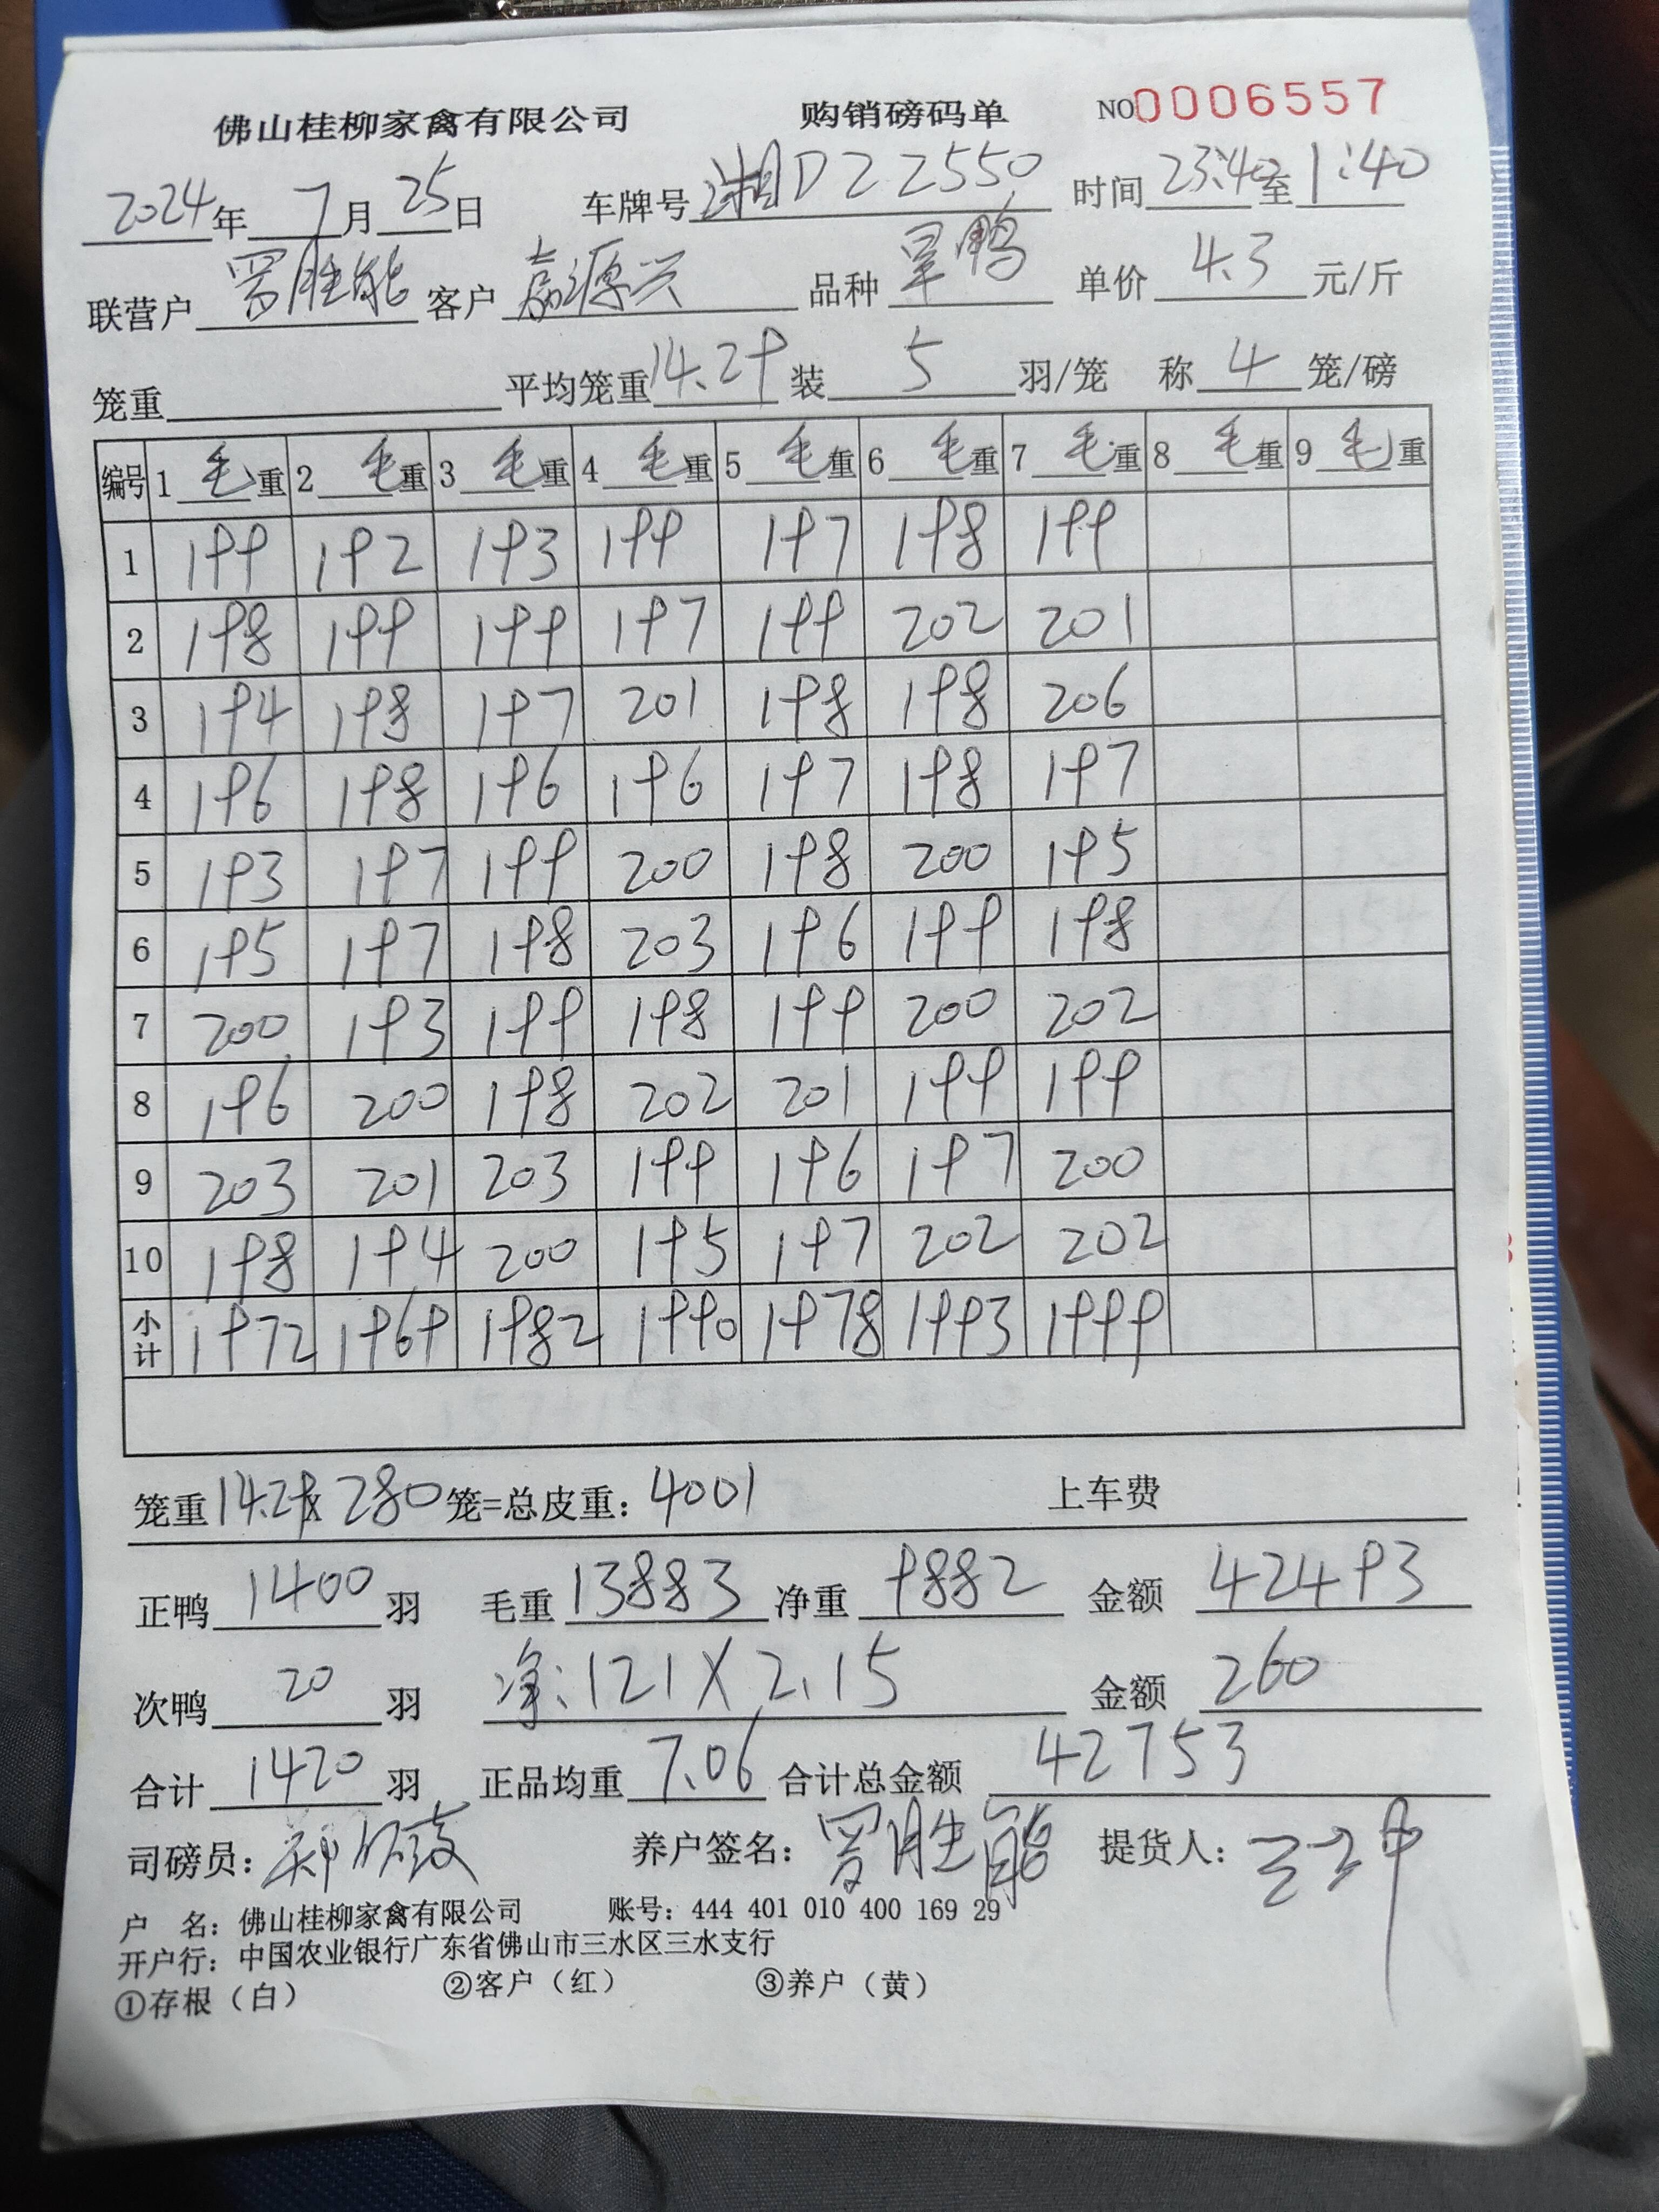 佛山桂柳家禽有限公司 购销磅码单 NO0006557
2024年 7月 25日 车牌号 湘DZ2550 时间 23:40至 1:40
联营户 罗胜能 客户 嘉源兴 品种 旱鸭 单价 4.3 元/斤
笼重 平均笼重 14.29 装 5 羽/笼 称 4 笼/磅
编号 1 毛重 2 毛重 3 毛重 4 毛重 5 毛重 6 毛重 7 毛重 8 毛重 9 毛重
1 199 192 193 199 197 198 199
2 198 199 199 197 199 202 201
3 194 198 197 201 198 198 206
4 196 198 196 196 197 198 197
5 193 197 199 200 198 200 195
6 195 197 198 203 196 199 198
7 200 193 199 198 199 200 202
8 196 200 198 202 201 199 199
9 203 201 203 199 196 197 200
10 198 194 200 195 197 202 202
小计 1972 1969 1982 1990 1978 1993 1999
笼重 14.29x 280 笼=总皮重: 4001 上车费
正鸭 1400 羽 毛重 13883 净重 9882 金额 42493
次鸭 20 羽 净:121X2.15 金额 260
合计 1420 羽 正品均重 7.06 合计总金额 42753
司磅员: 养户签名: 罗胜能 提货人:
户 名: 佛山桂柳家禽有限公司 账号: 444 401 010 400 169 29
开户行: 中国农业银行广东省佛山市三水区三水支行
①存根（白） ②客户（红） ③养户（黄）